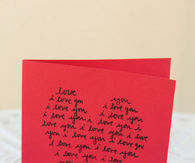 love
i love you you
i love you i love you
i love you i love you
i love you i love you i
love you i love you i love
you i love you i love you
i love you i love you
i love you